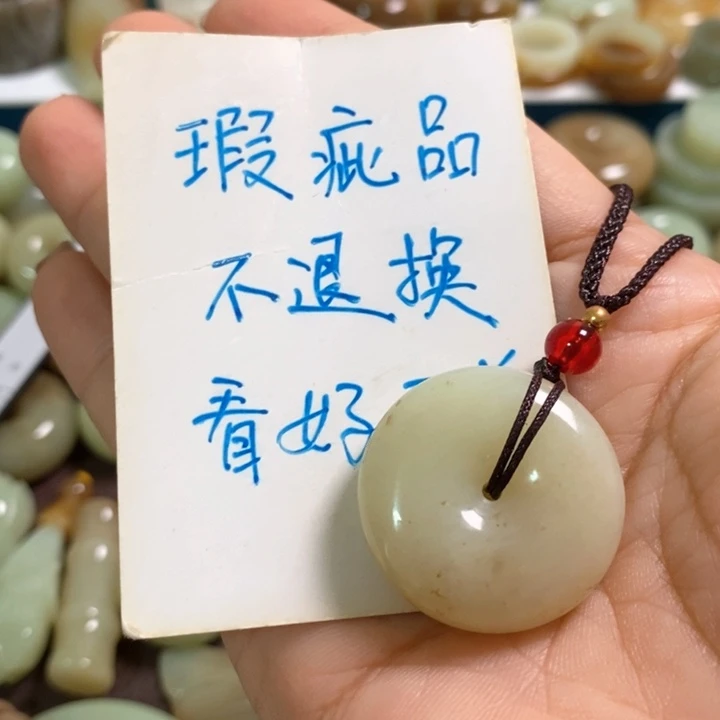 瑕疵品
不退换
看好